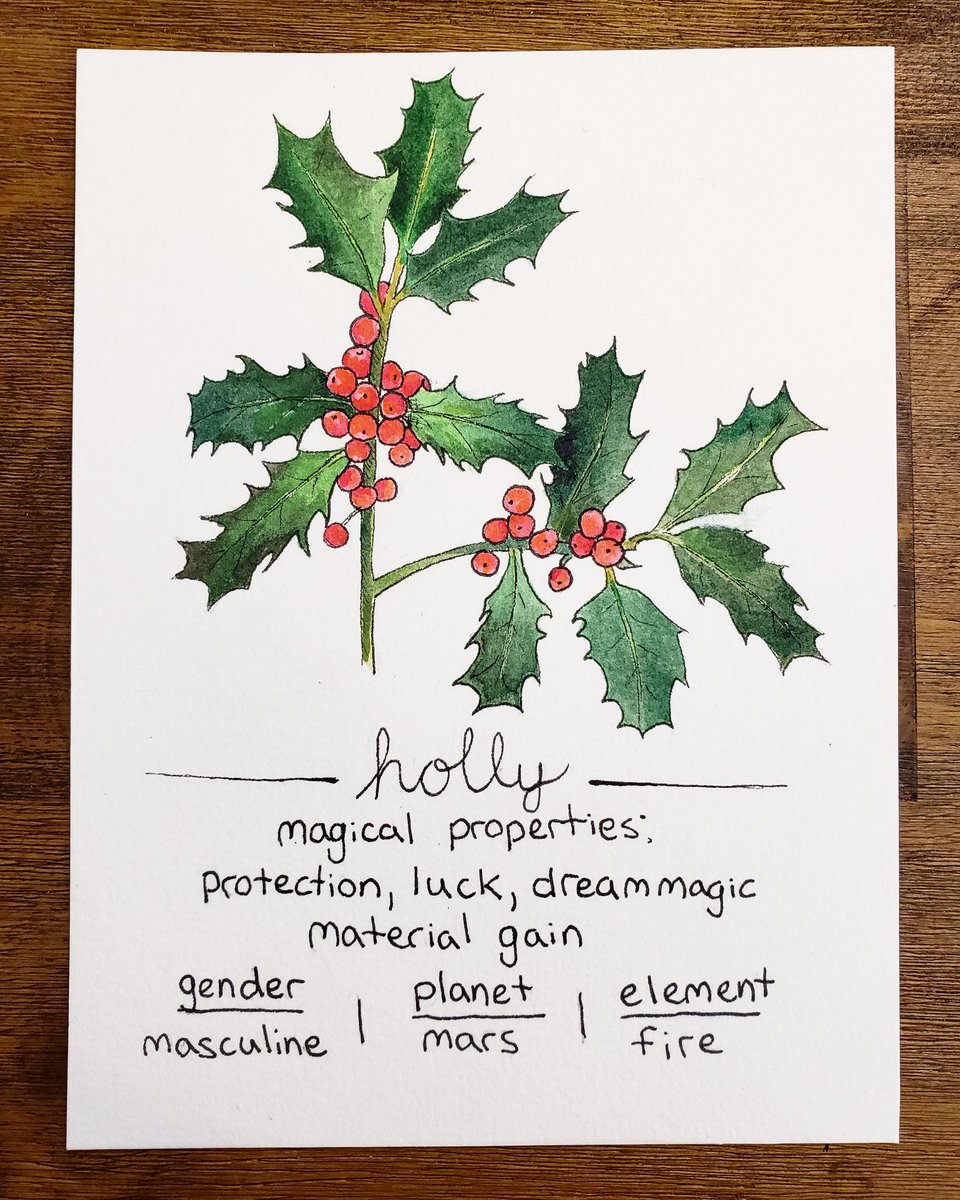 holly
magical properties:
protection, luck, dream magic
material gain
gender | planet | element
masculine | mars | fire